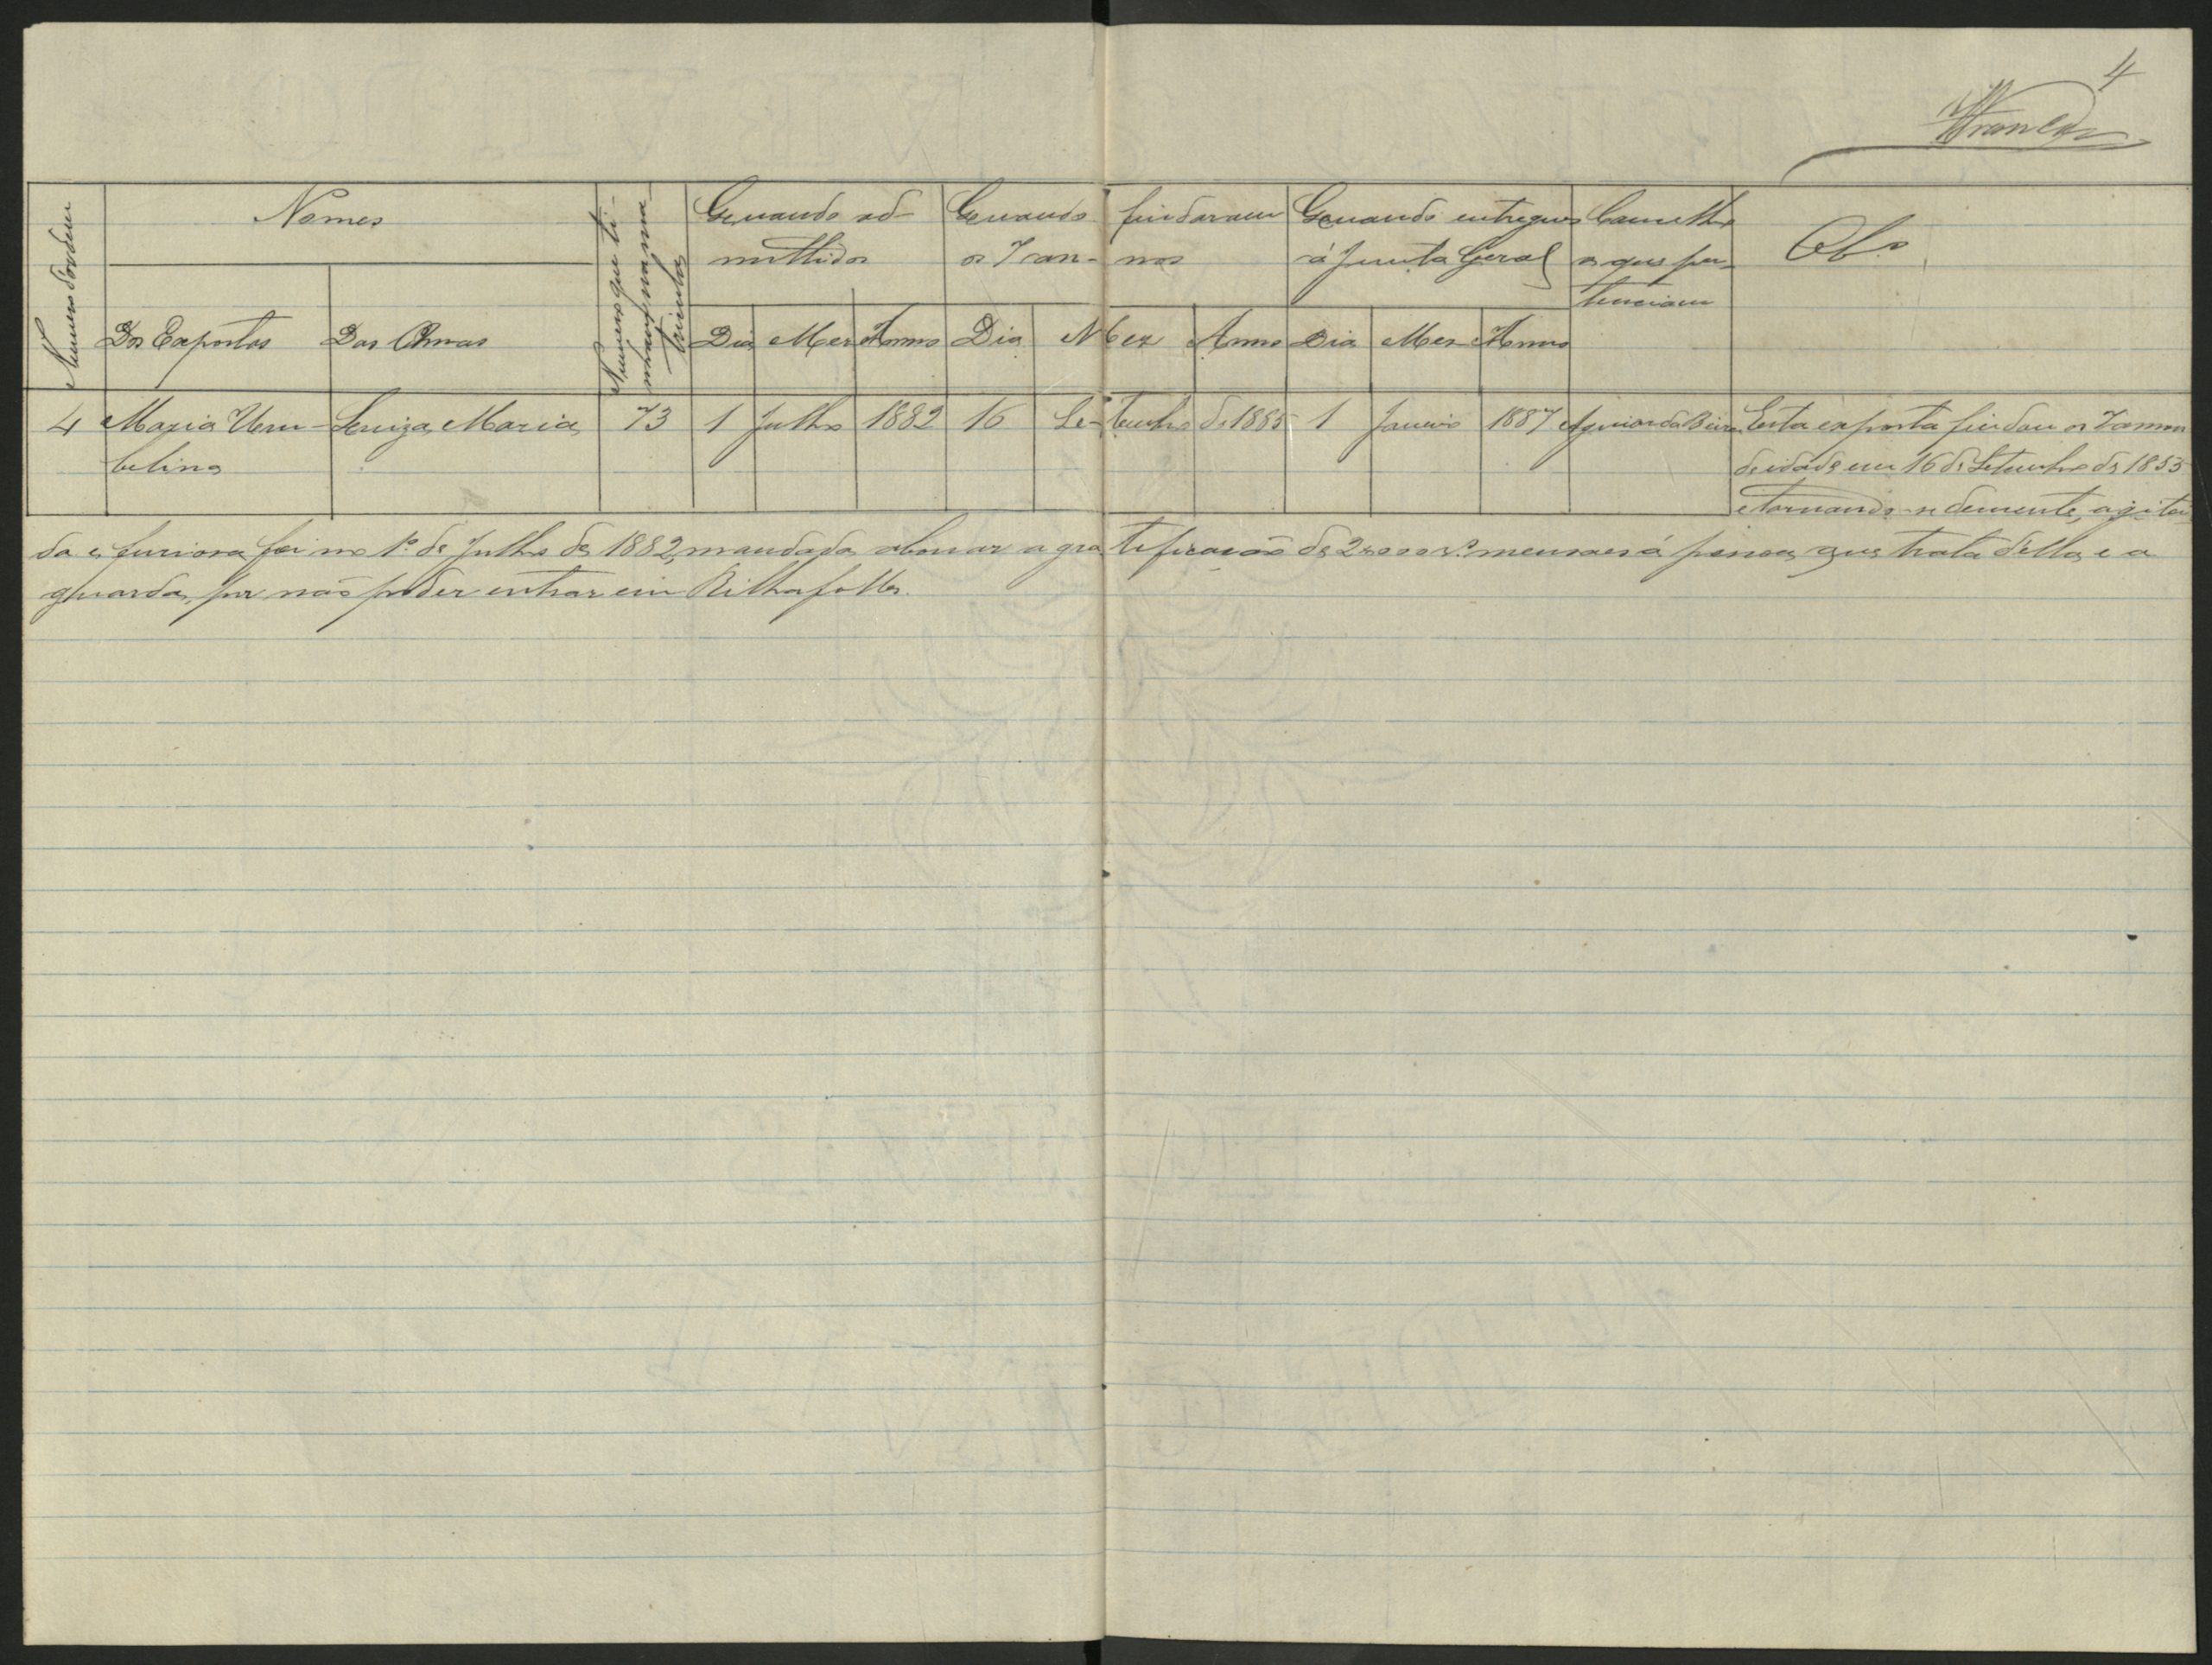 4
Numero d'ordem
Nomes
Dos Expostos
Das Amas
Numero que ti-
nham na ma-
tricula
Quando ad-
mittidos
Dia Mez Anno
Quando findaram
os 7 an- nos
Dia Mez Anno
Quando entregues
á Junta Geral
Dia Mez Anno
Concelho
a que per-
tenciam
Obs
4 Maria Um- Luiza Maria 73 1 Julho 1882 16 Se- tembro de 1885 1 Janeiro 1887 Aguiar da Beira Esta exposta findou os 7 annos
belina de idade em 16 de Setembro de 1855
e tornando-se demente, agita-
da e furiosa foi no 1º de Julho de 1882, mandada abonar a gra tificação de 2:000 rs mensaes á pessoa que trata d'ella e a
guarda, por não poder entrar em Rilhafolles.